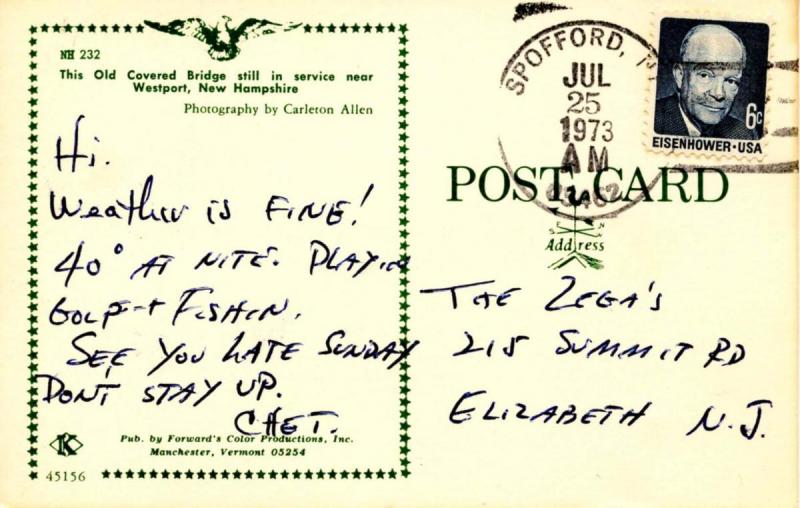 NH 232
This Old Covered Bridge still in service near
Westport, New Hampshire
Photography by Carleton Allen
Hi.
Weather is FINE!
40° AT NITE. PLAYIN
GOLF + FISHIN.
SEE YOU LATE SUNDAY
DON'T STAY UP.
CHET.
Pub. by Forward's Color Productions, Inc.
Manchester, Vermont 05254
K
45156
SPOFFORD, N
JUL
25
1973
AM
03462
6c
EISENHOWER·USA
POST CARD
Address
THE ZEGA'S
215 SUMMIT RD
ELIZABETH N.J.